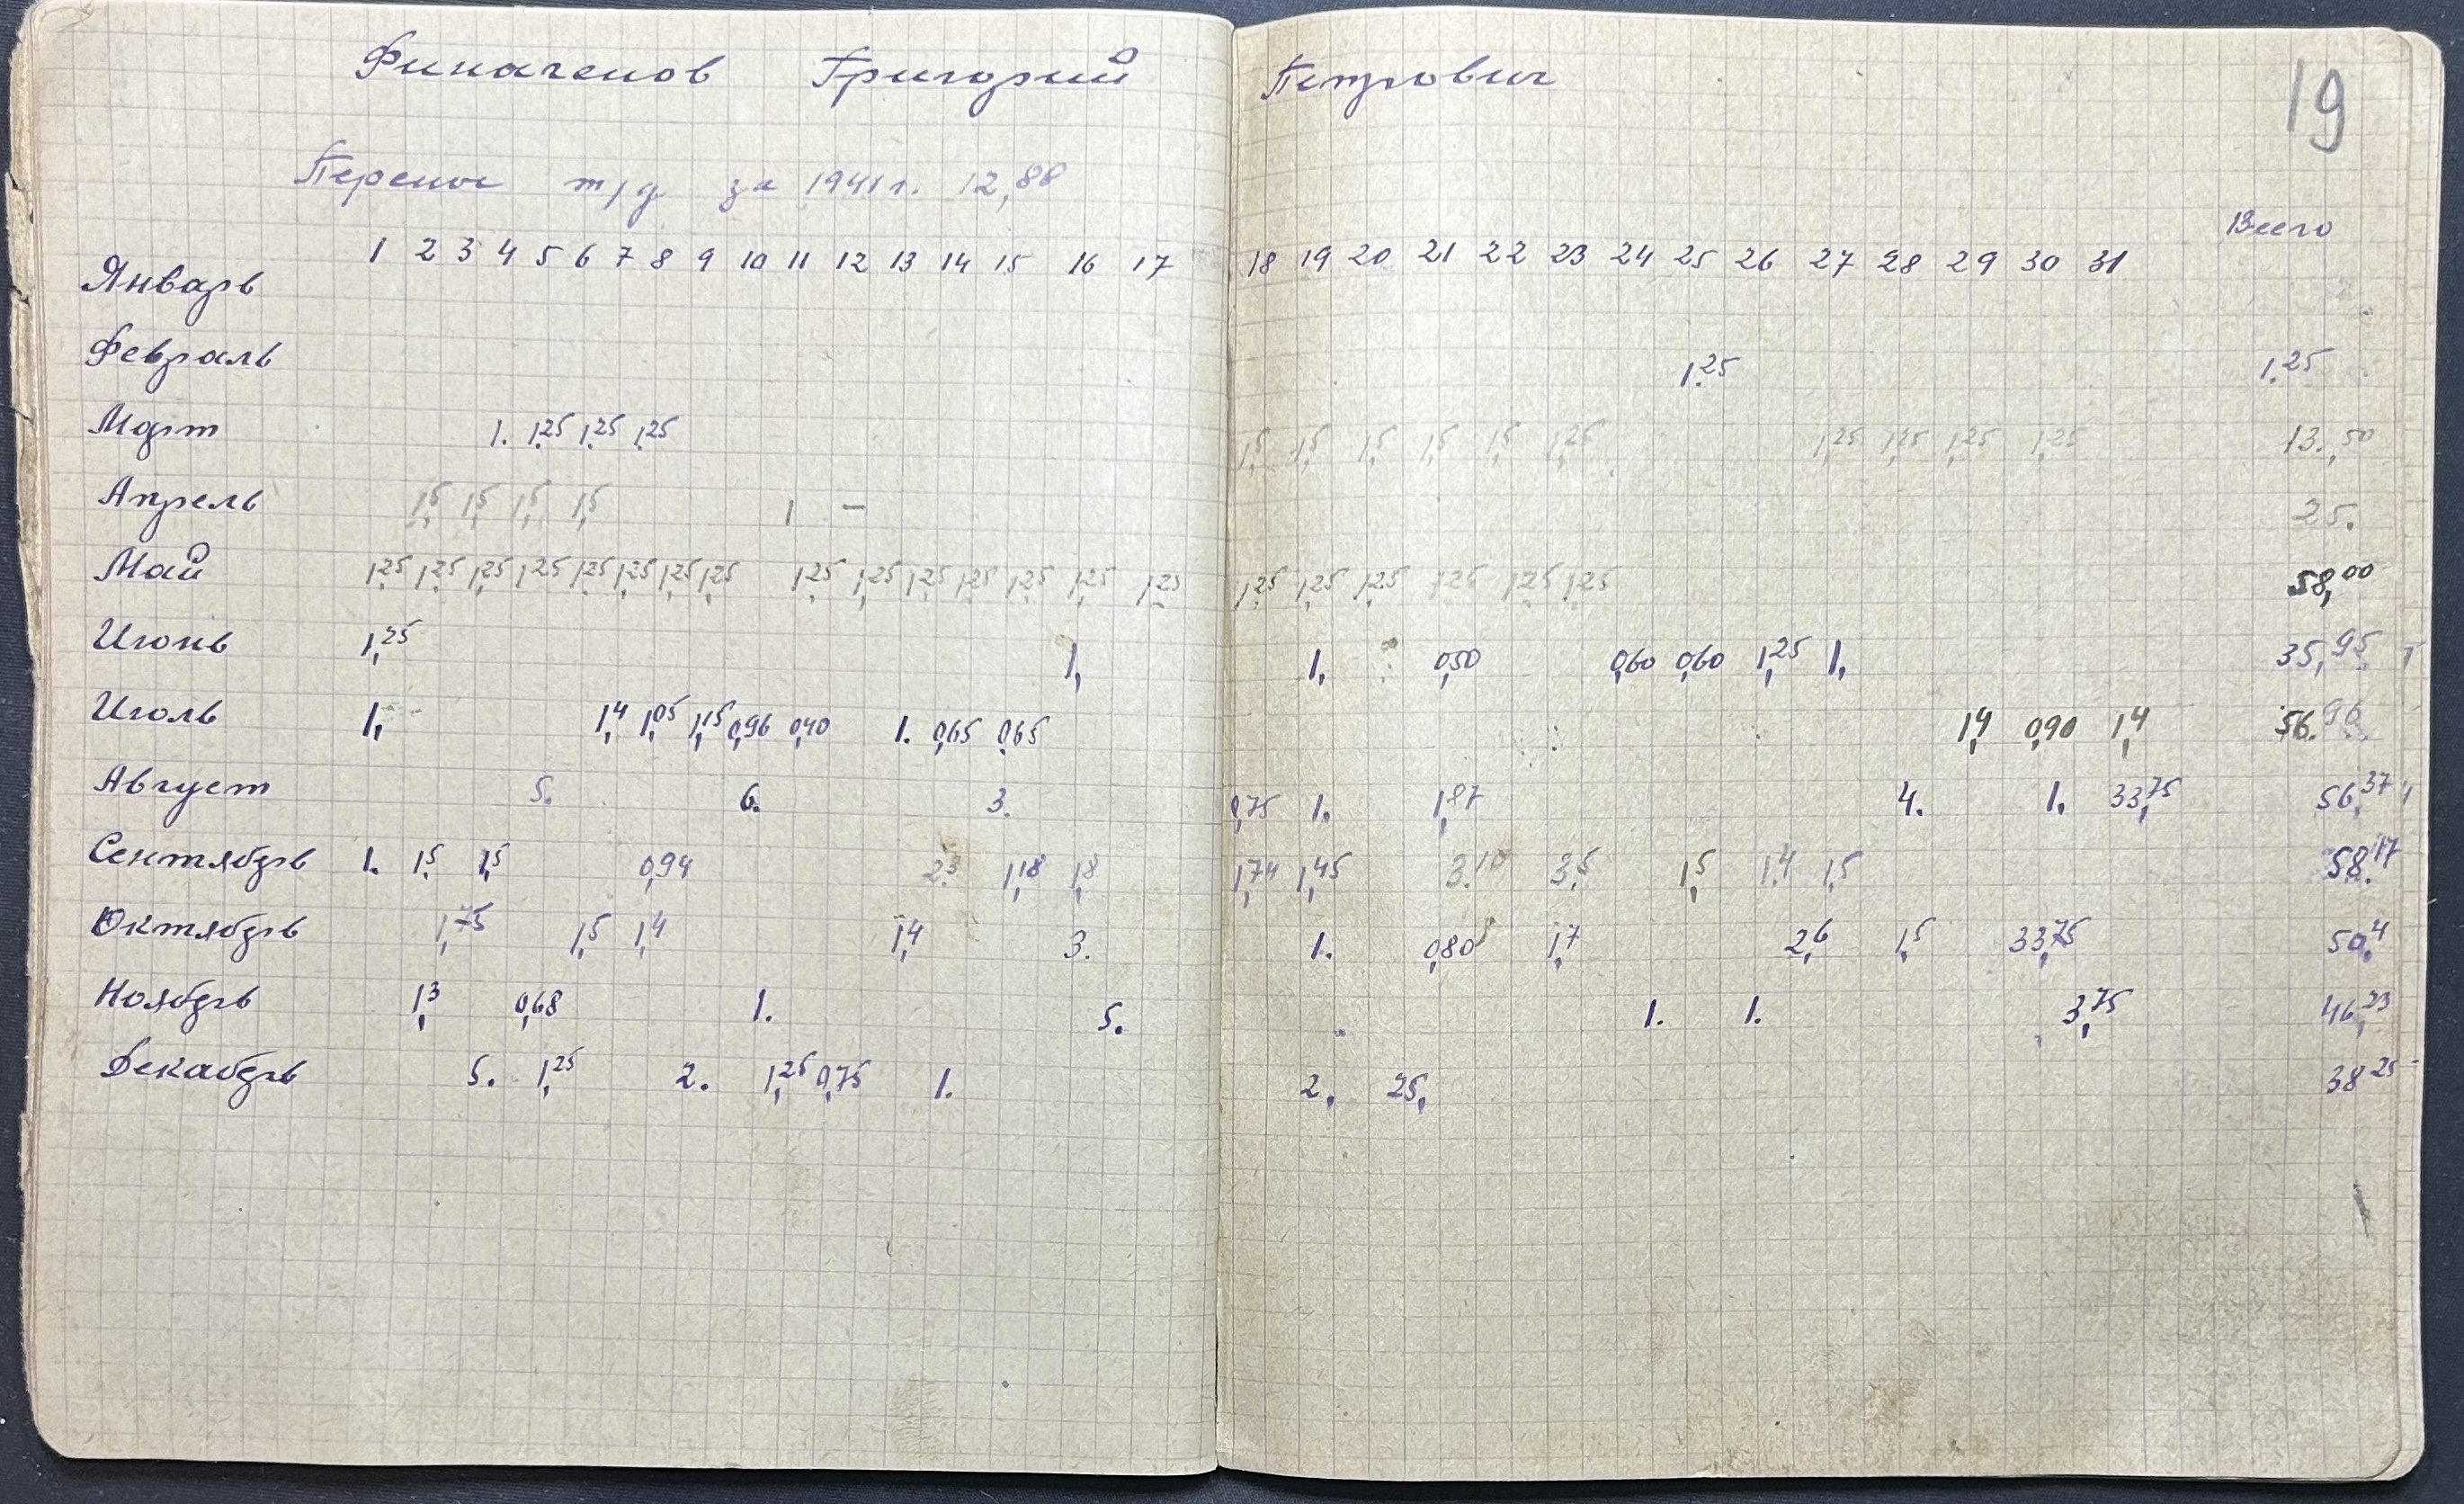 Финагенов Григорий Петрович 19
Перенос т/д за 1941 г. 12,88
Всего
1 2 3 4 5 6 7 8 9 10 11 12 13 14 15 16 17 18 19 20 21 22 23 24 25 26 27 28 29 30 31
Январь
Февраль 1.25 1.25
Март 1. 1.25 1.25 1.25 1,5 1,5 1,5 1,5 1,5 1,25 1,25 1,25 1,25 1,25 13.,50
Апрель 1,5 1,5 1,5 1,5 1 - 25.
Май 1,25 1,25 1,25 1,25 1,25 1,25 1,25 1,25 1,25 1,25 1,25 1,25 1,25 1,25 1,25 1,25 1,25 1,25 1,25 1,25 1,25 58,00
Июнь 1,25 1, 1, 0,50 0,60 0,60 1,25 1, 35,95
Июль 1, 1,4 1,05 1,15 0,96 0,40 1. 0,65 0,65 1,4 0,90 1,4 56.96
Август 5. 6. 3. 0,75 1. 1,87 4. 1. 33,75 56,37
Сентябрь 1. 1,5 1,5 0,94 2.3 1,18 1,8 1,74 1,45 3.10 3,5 1,5 1.4 1,5 58.17
Октябрь 1,75 1,5 1,4 1,4 3. 1. 0,80 1,7 2,6 1,5 33,75 50,4
Ноябрь 1,3 0,68 1. 5. 1. 1. 3,75 46,23
Декабрь 5. 1,25 2. 1,25 0,75 1. 2, 25, 38 25